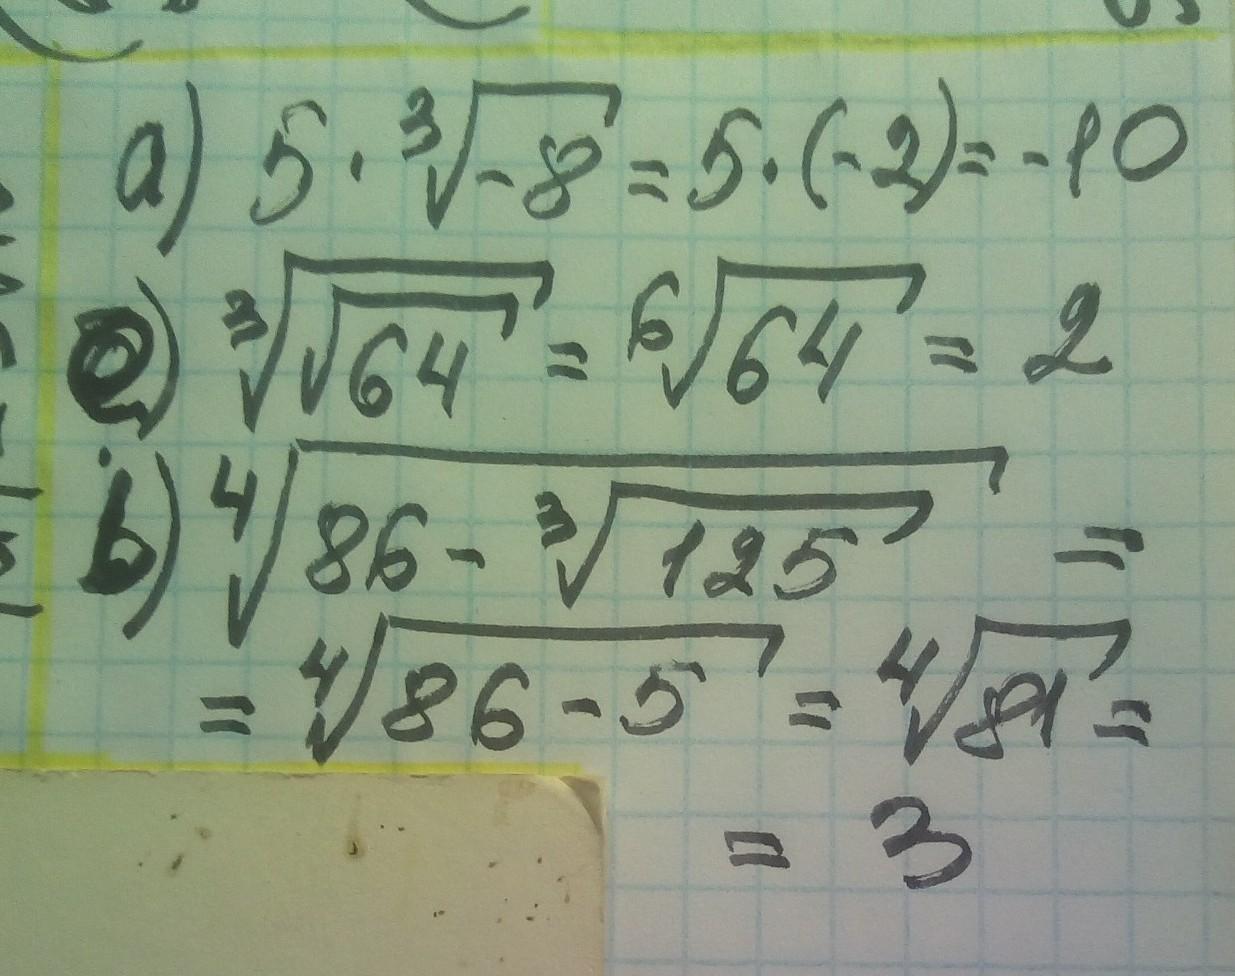 a) 5 · ∛-8 = 5 · (-2) = -10
e) ∛√64 = ⁶√64 = 2
b) ⁴√(86 - ∛125) =
= ⁴√(86 - 5) = ⁴√81 =
= 3